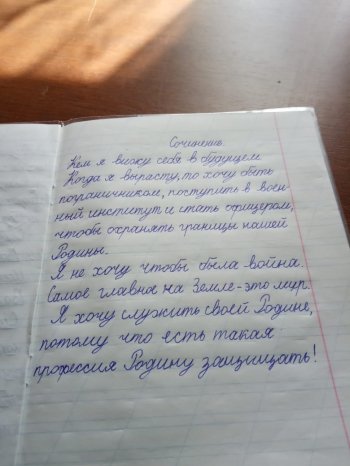 Сочинение.
Кем я вижу себя в будущем
Когда я вырасту, то хочу быть
пограничником, поступить в воен-
ный институт и стать офицером,
чтобы охранять границы нашей
Родины.
Я не хочу чтобы была война.
Самое главное на Земле-это мир.
Я хочу служить своей Родине,
потому что есть такая
профессия Родину защищать!